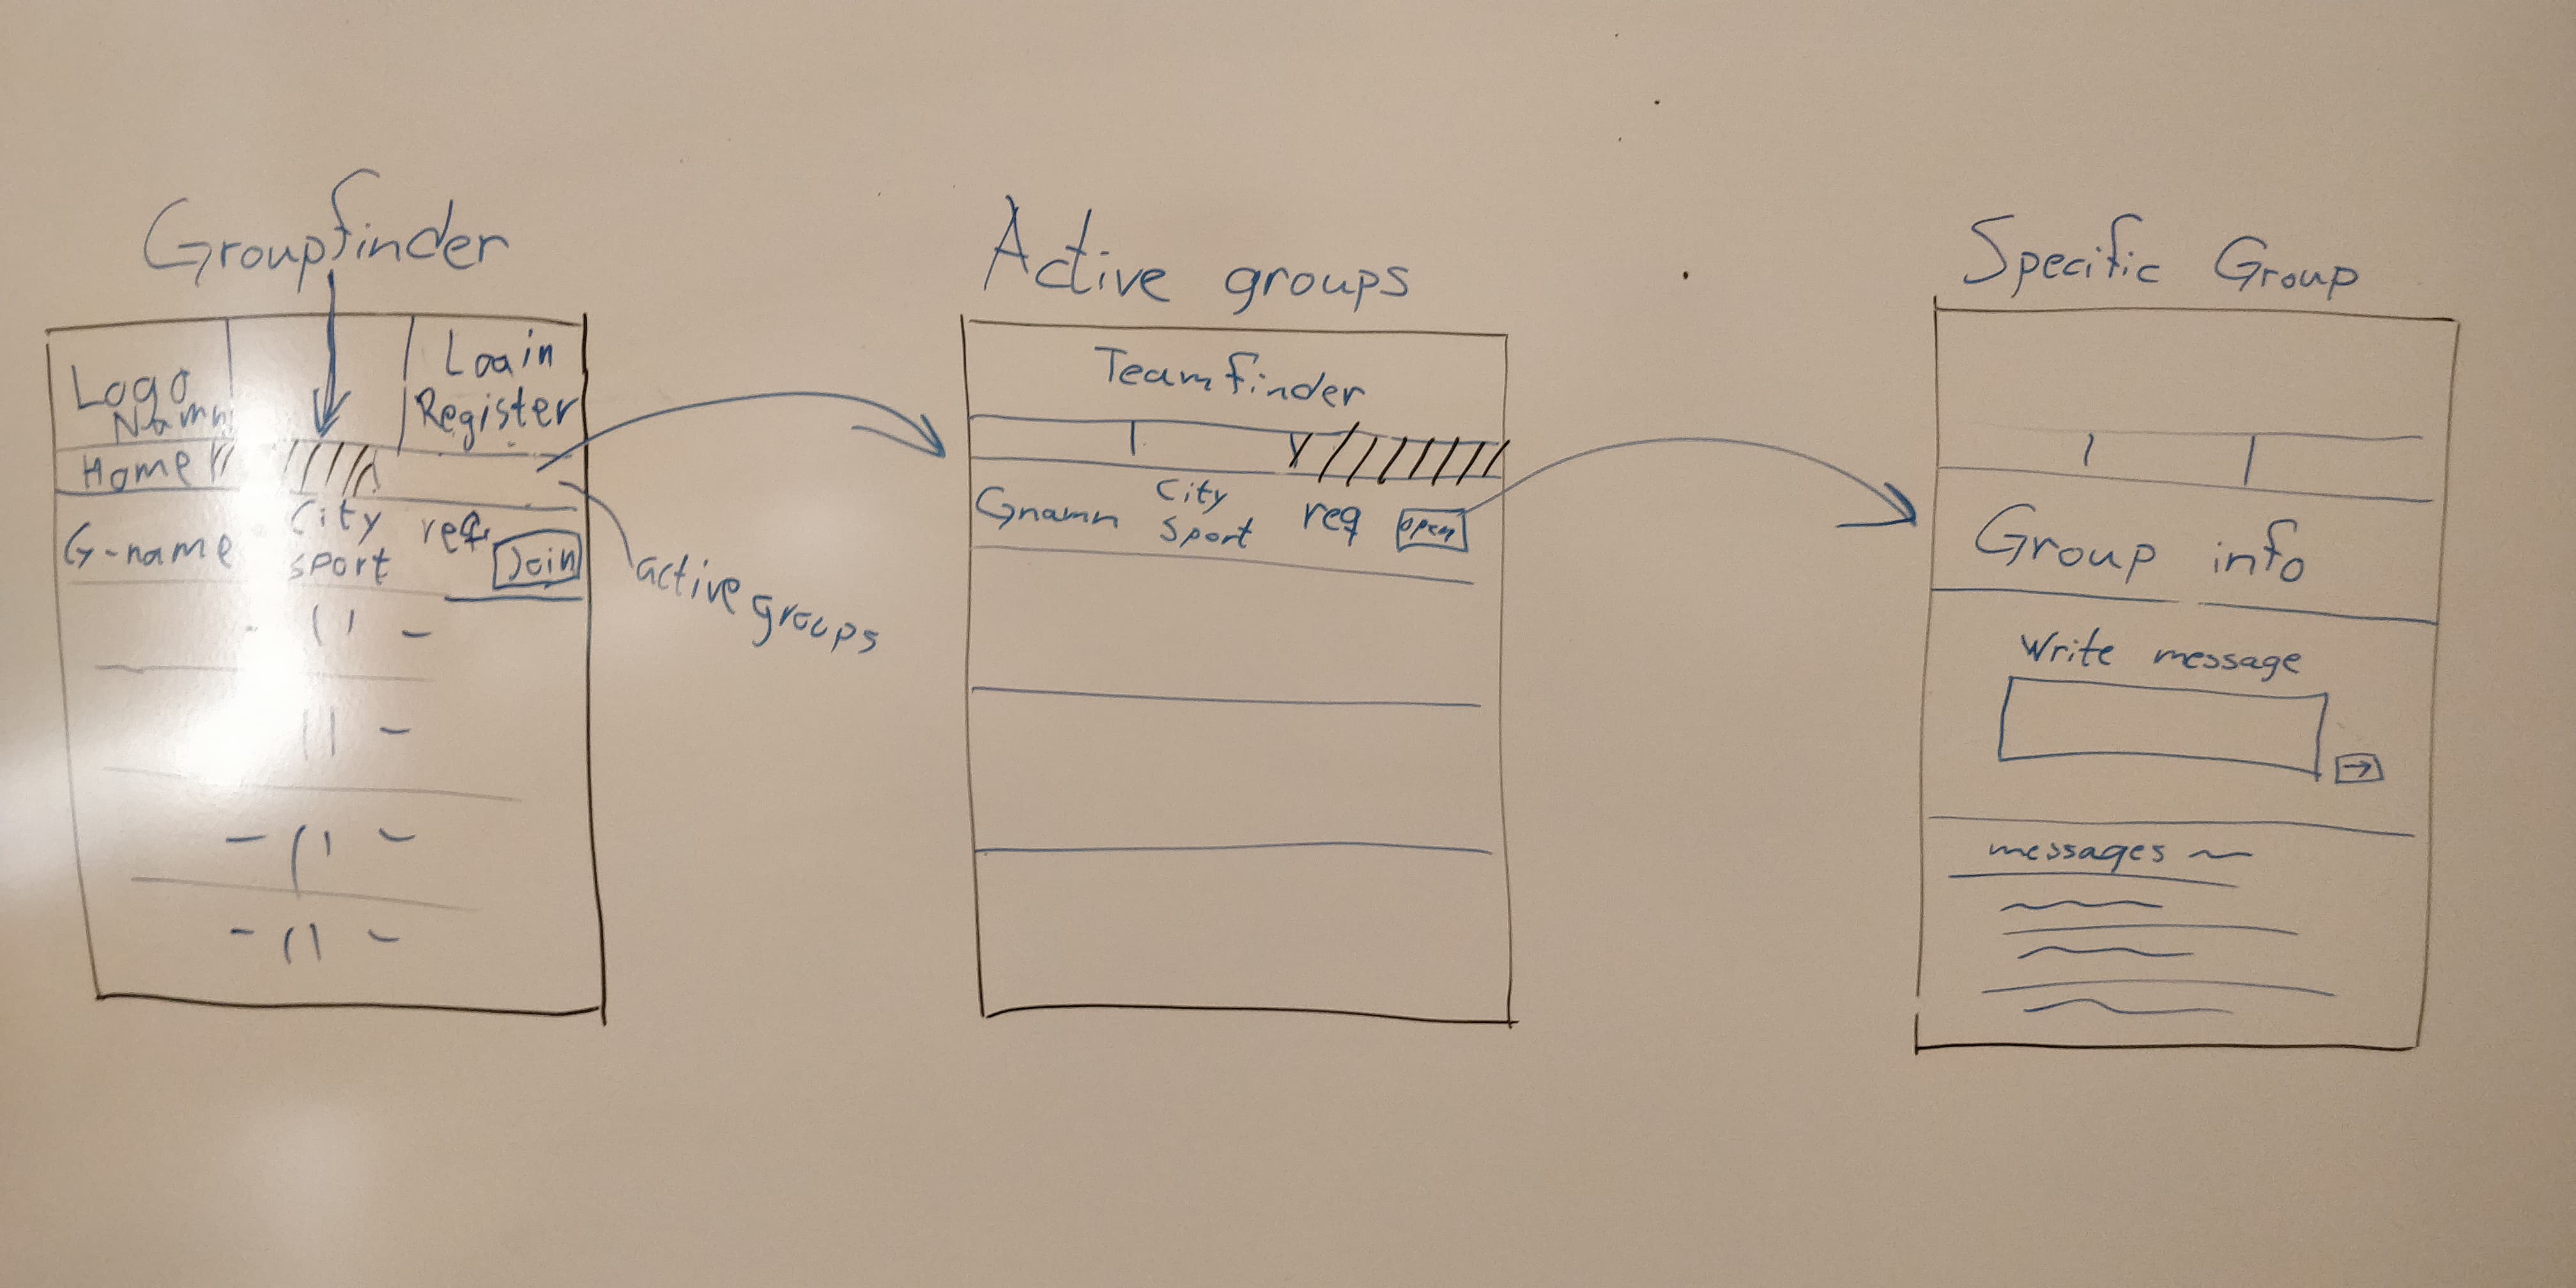 Groupfinder
Logo
Namn
Login
Register
Home
G-name
City
sport
req.
Join
active groups
Active groups
Teamfinder
Gnamn
City
Sport
req
open
Specific Group
Group info
Write message
→
messages